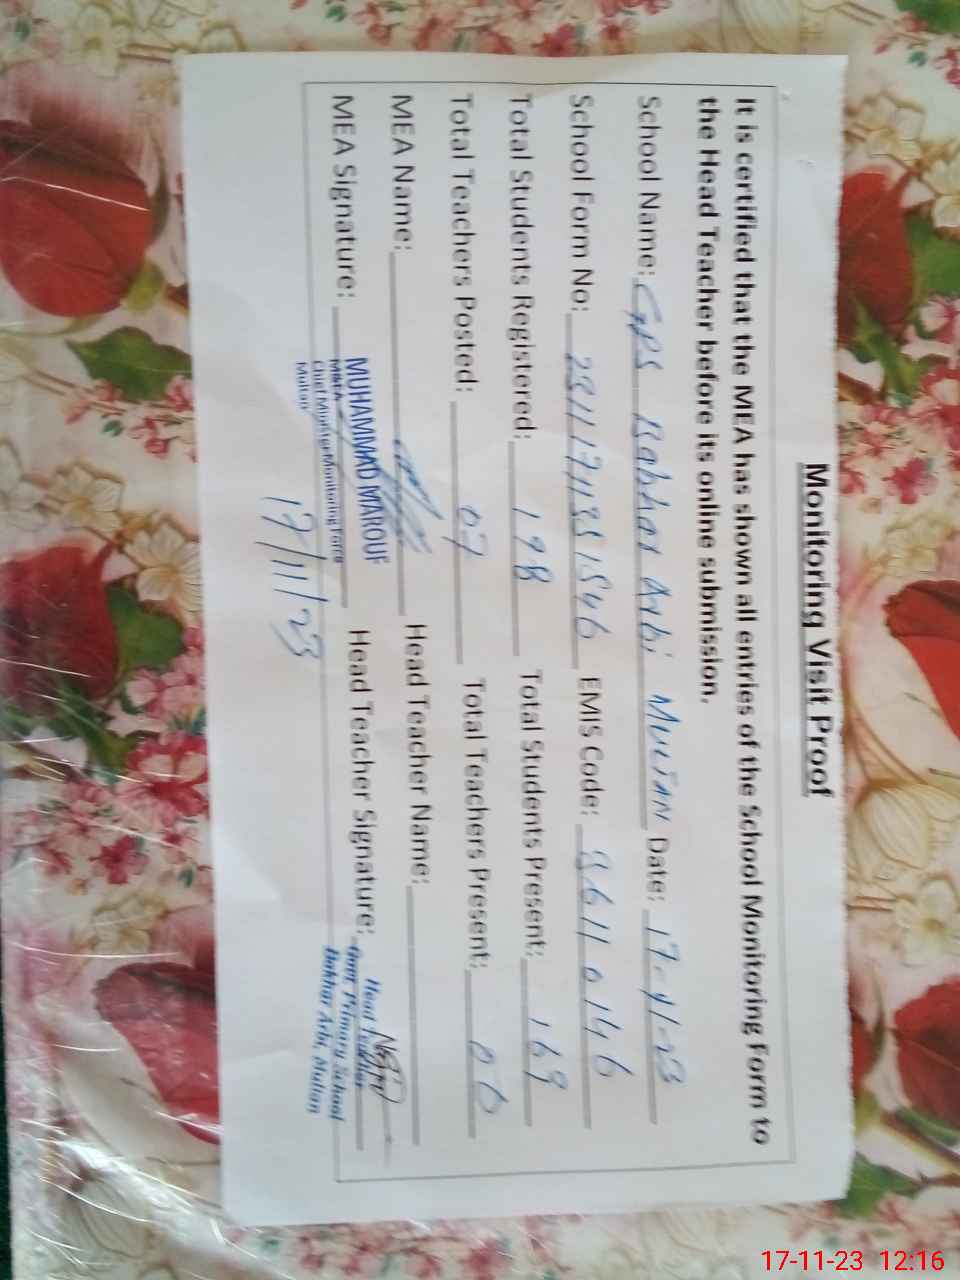 Monitoring Visit Proof
It is certified that the MEA has shown all entries of the School Monitoring Form to
the Head Teacher before its online submission.
School Name: GPS Bakhar Arbi Multan Date: 17-11-23
School Form No: EMIS Code: 36110146
Total Students Registered: 198 Total Students Present: 169
Total Teachers Posted: 07 Total Teachers Present: 06
MEA Name: Head Teacher Name:
MEA Signature: Head Teacher Signature:
MUHAMMAD MAROUF
MEA
Chief Minister Monitoring Force
Multan
17/11/23
Head Teacher
Govt. Primary School
Bakhar Arbi, Multan
17-11-23 12:16